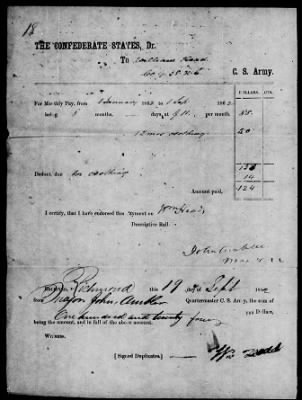 18
THE CONFEDERATE STATES, Dr.
To William
C. S. Army.
DOLLARS. CTS.
For Monthly Pay, from 1 January 1863 to 1 Sept 1863
being 8 months days at $11. per month. 88.
12 mos clothing 50
138
Deduct due on clothing 14
Amount paid, 124
I certify, that I have endorsed this payment on
Descriptive Roll.
Received, Richmond this 19 day of Sept
from Major John Ambler Quartermaster C. S. Army, the sum of
One hundred and twenty four Dollars,
being the amount, and in full of the above account.
Witness.
[Signed Duplicates.] Wm